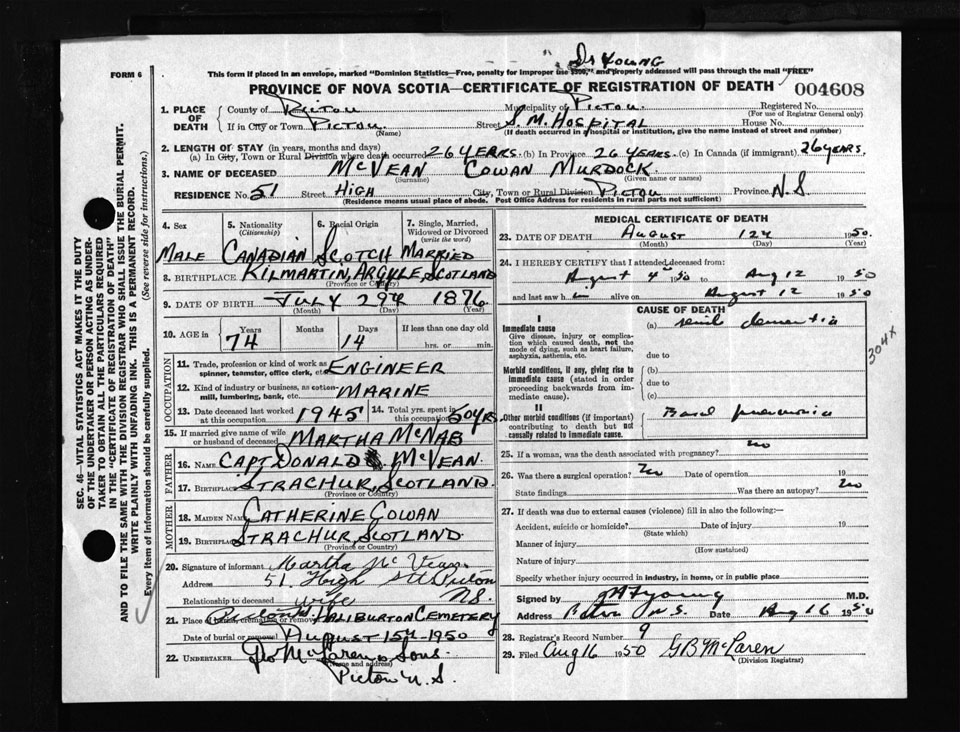 Dr Young
FORM 6
This form if placed in an envelope, marked "Dominion Statistics—Free, penalty for improper use $300," and properly addressed will pass through the mail "FREE"
PROVINCE OF NOVA SCOTIA—CERTIFICATE OF REGISTRATION OF DEATH
004608
1. PLACE OF DEATH
County of Pictou Municipality of Pictou Registered No.
(For use of Registrar General only)
If in City or Town Pictou Street S. M. Hospital House No.
(Name) (If death occurred in a hospital or institution, give the name instead of street and number)
2. LENGTH OF STAY (in years, months and days)
(a) In City, Town or Rural Division where death occurred 26 YEARS. (b) In Province 26 YEARS. (c) In Canada (if immigrant) 26 YEARS.
3. NAME OF DECEASED McVEAN COWAN MURDOCK.
(Surname) (Given name or names)
RESIDENCE NO. 51 Street HIGH City, Town or Rural Division PICTOU Province N.S
(Residence means usual place of abode. Post Office Address for residents in rural parts not sufficient)
4. Sex 5. Nationality (Citizenship) 6. Racial Origin 7. Single, Married, Widowed or Divorced (write the word)
MALE CANADIAN SCOTCH MARRIED
8. BIRTHPLACE KILMARTIN, ARGYLE, SCOTLAND
(Province or Country)
9. DATE OF BIRTH JULY 29th 1876
(Month) (Day) (Year)
10. AGE in Years Months Days If less than one day old
74 14 hrs. or min.
OCCUPATION
11. Trade, profession or kind of work as spinner, teamster, office clerk, etc. ENGINEER
12. Kind of industry or business, as cotton-mill, lumbering, bank, etc. MARINE
13. Date deceased last worked at this occupation 1945 14. Total yrs. spent in this occupation 50 YRS.
15. If married give name of wife or husband of deceased MARTHA McNAB
FATHER
16. NAME CAPT DONALD McVEAN.
17. BIRTHPLACE STRACHUR, SCOTLAND.
(Province or Country)
MOTHER
18. MAIDEN NAME CATHERINE COWAN
19. BIRTHPLACE STRACHUR, SCOTLAND.
(Province or Country)
20. Signature of informant Martha McVean
Address 51. High St Pictou
Relationship to deceased wife N.S.
21. Place of burial, cremation or removal HALIBURTON CEMETERY
Date of burial or removal AUGUST 15th-1950
22. UNDERTAKER Geo McLaren & Sons.
(Name and address)
Pictou N.S.
MEDICAL CERTIFICATE OF DEATH
23. DATE OF DEATH August 12th 1950.
(Month) (Day) (Year)
24. I HEREBY CERTIFY that I attended deceased from:
August 4th 1950 to Aug 12 1950
and last saw him alive on August 12 1950
CAUSE OF DEATH
I
Immediate cause (a) senile dementia
Give disease, injury or complication which caused death, not the mode of dying, such as heart failure, asphyxia, asthenia, etc.
due to
Morbid conditions, if any, giving rise to immediate cause (stated in order proceeding backwards from immediate cause). (b)
due to
(c)
304x
II
Other morbid conditions (if important) contributing to death but not causally related to immediate cause. Basal pneumonia
25. If a woman, was the death associated with pregnancy? no
26. Was there a surgical operation? No Date of operation 19
State findings Was there an autopsy? no
27. If death was due to external causes (violence) fill in also the following:—
Accident, suicide or homicide? Date of injury 19
(State which)
Manner of injury
(How sustained)
Nature of injury
Specify whether injury occurred in industry, in home, or in public place
Signed by Young M.D.
Address Pictou N.S. Date Aug 16 1950
28. Registrar's Record Number 9
29. Filed Aug 16 1950 GB McLaren
(Division Registrar)
SEC. 46—VITAL STATISTICS ACT MAKES IT THE DUTY
OF THE UNDERTAKER OR PERSON ACTING AS UNDER-
TAKER TO OBTAIN ALL THE PARTICULARS REQUIRED
IN THE "CERTIFICATE OF REGISTRATION OF DEATH"
AND TO FILE THE SAME WITH THE DIVISION REGISTRAR WHO SHALL ISSUE THE BURIAL PERMIT.
WRITE PLAINLY WITH UNFADING INK. THIS IS A PERMANENT RECORD.
Every item of Information should be carefully supplied. (See reverse side for instructions.)